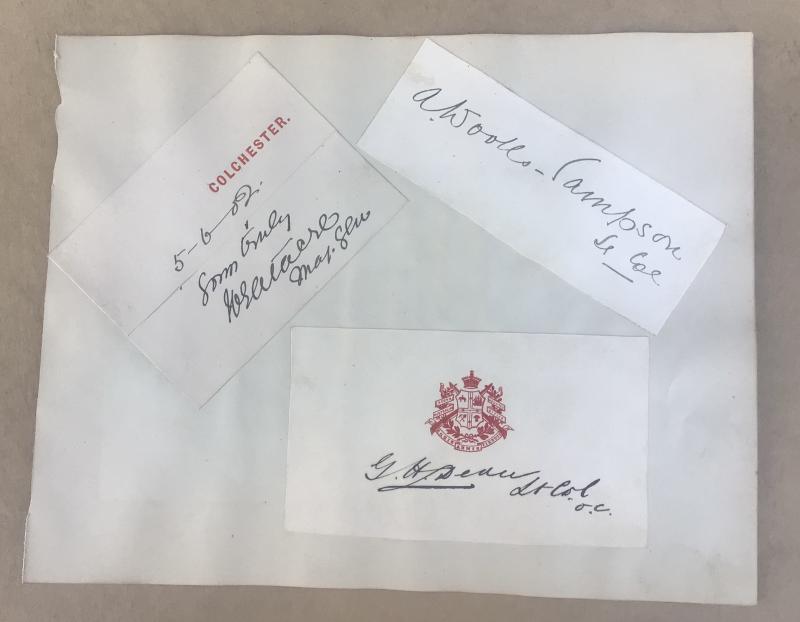 COLCHESTER.
5-6-02.
Yours truly
W. F. Gatacre
Maj. Gen
A. Woolls-Sampson
Lt Col
G. H. Dean
Lt Col
O.C.